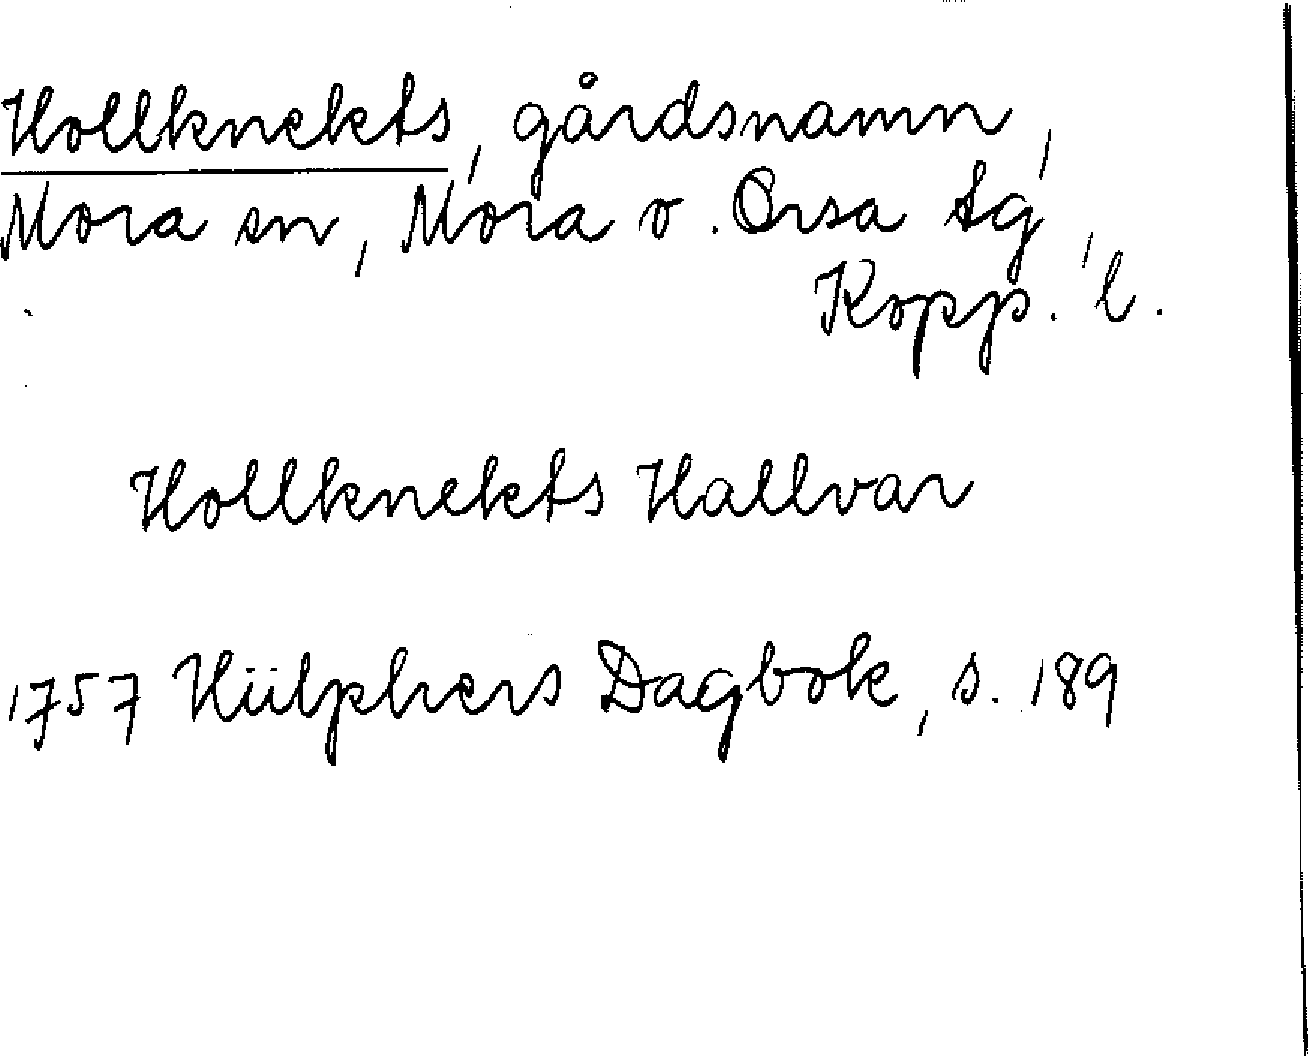 Hollknekts, gårdsnamn,
Mora sn, Mora o. Orsa tg,
Kopp. l.
Hollknekts Hallvar
1757 Hülphers Dagbok, s. 189